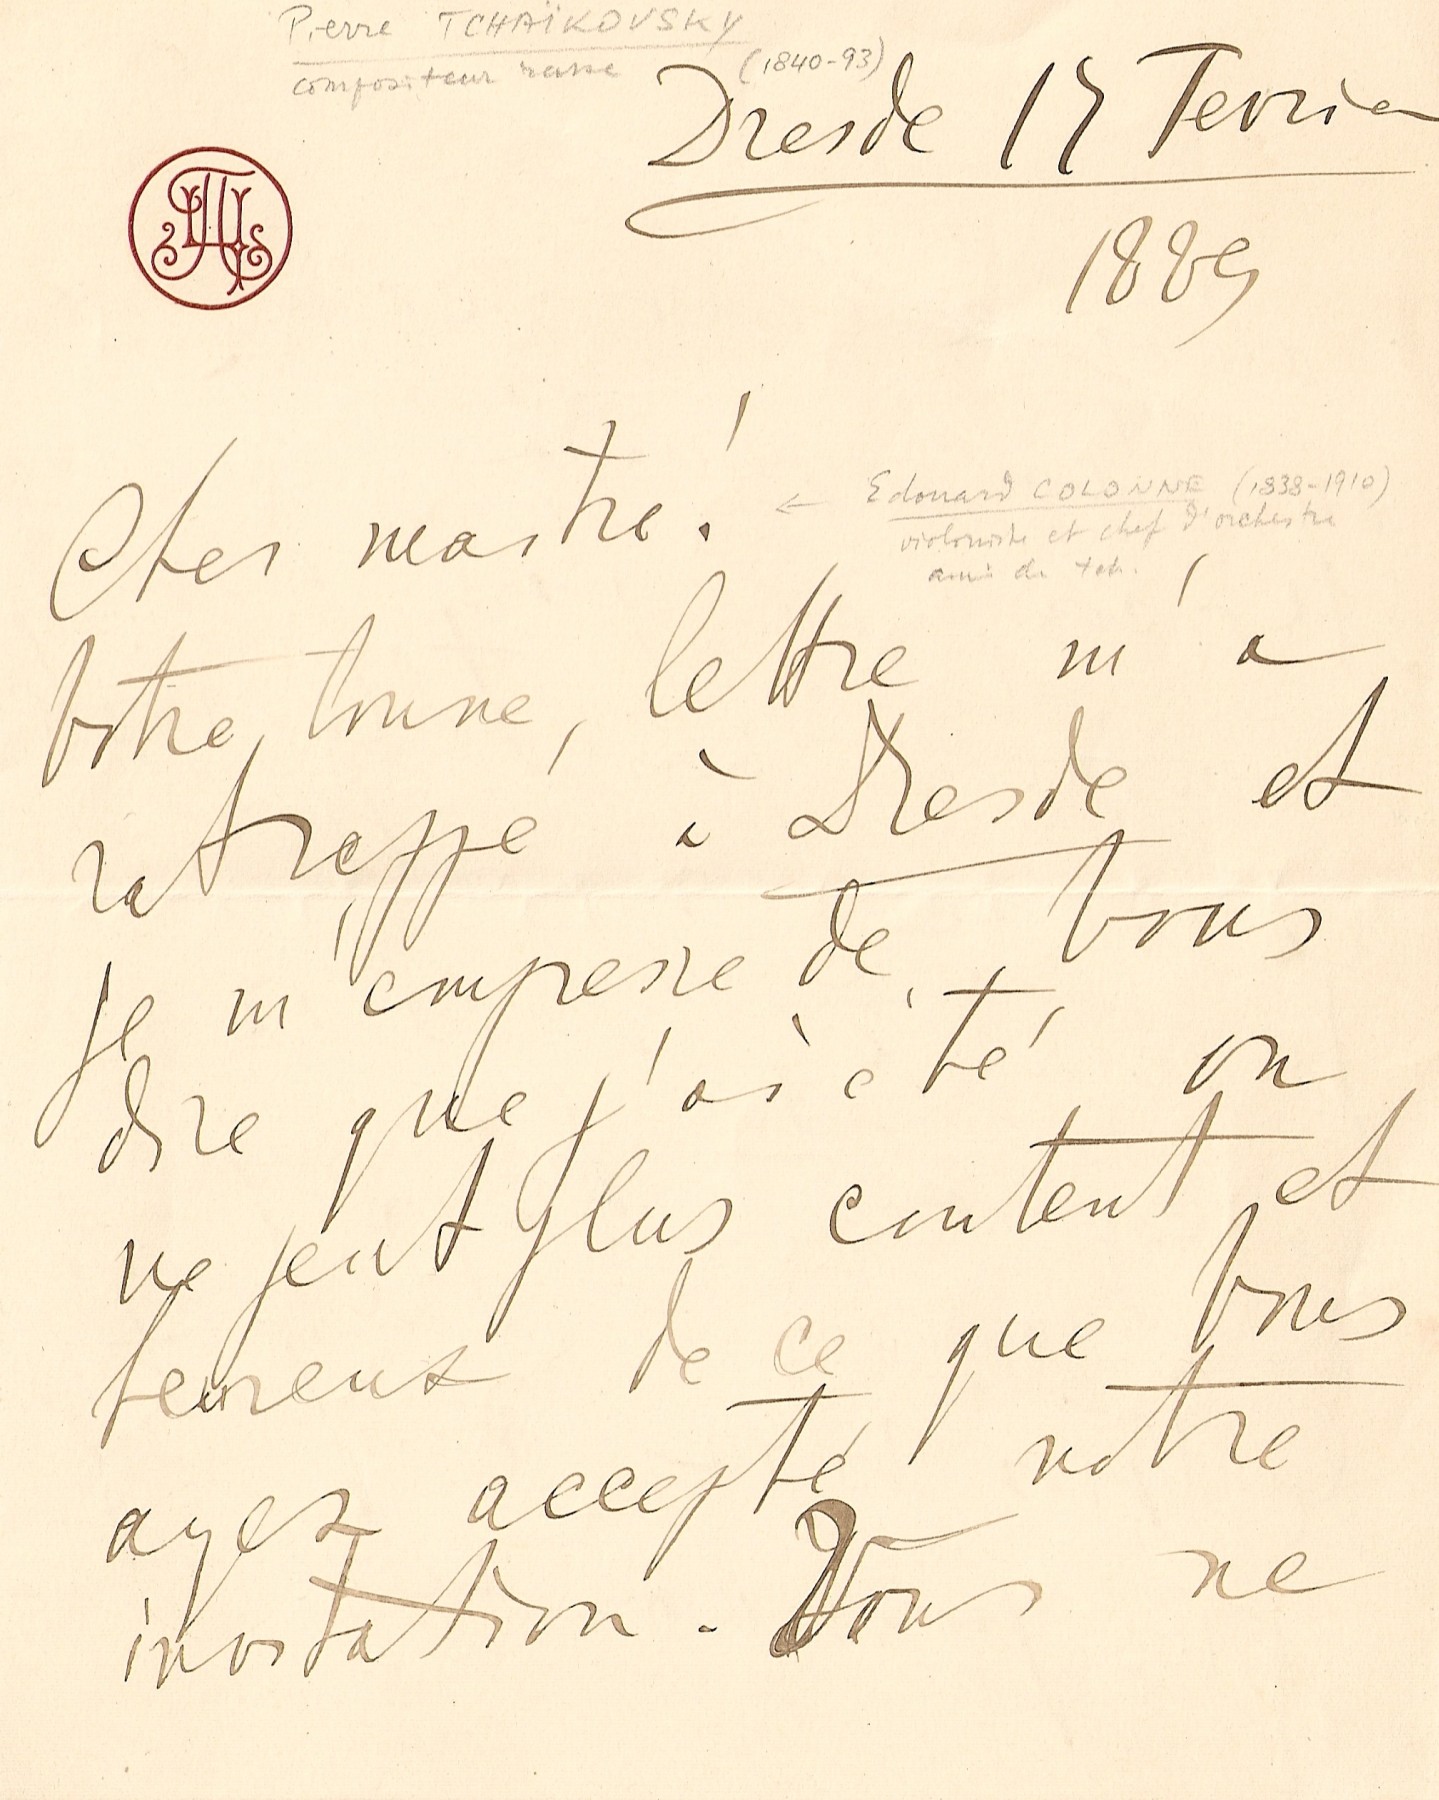 Pierre TCHAÏKOVSKY
compositeur russe (1840-93)
Dresde 17 Fevrier
1889
Cher maître!
← Edouard COLONNE (1838-1910)
violoniste et chef d'orchestre
ami de tch.
Votre bonne lettre m'a
ratrappé à Dresde et
je m'empresse de Vous
dire que j'ai été on
ne peut plus content et
heureux de ce que Vous
ayez accepté notre
invitation. Vous ne